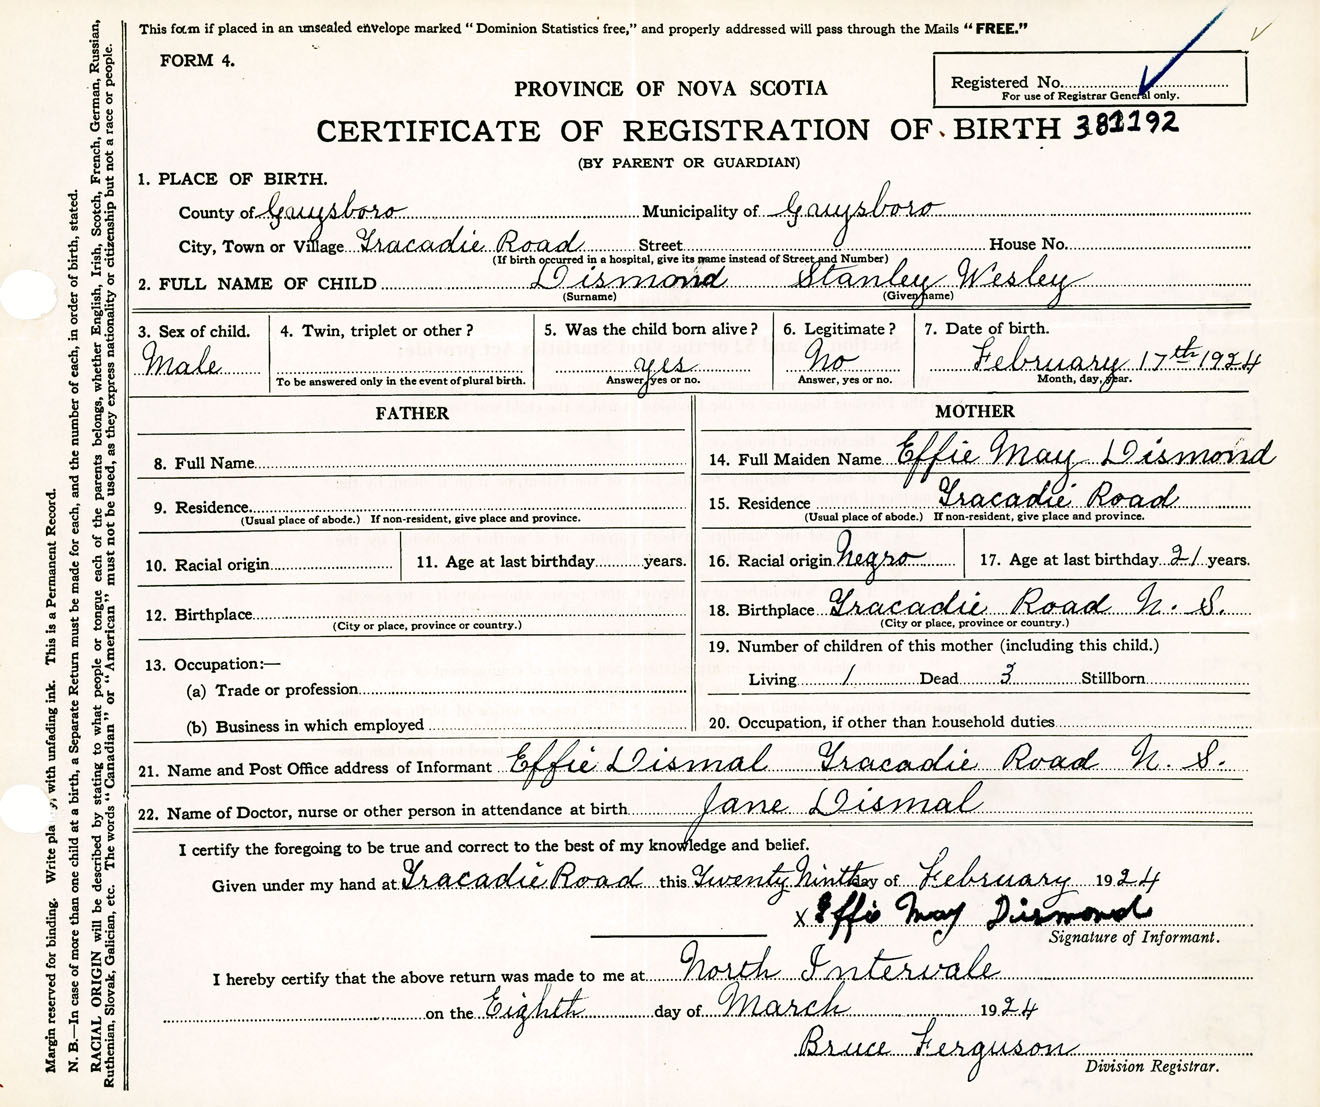 This form if placed in an unsealed envelope marked "Dominion Statistics free," and properly addressed will pass through the Mails "FREE."
FORM 4.
Registered No.
For use of Registrar General only.
PROVINCE OF NOVA SCOTIA
CERTIFICATE OF REGISTRATION OF BIRTH 381192
(BY PARENT OR GUARDIAN)
1. PLACE OF BIRTH.
County of Guysboro Municipality of Guysboro
City, Town or Village Tracadie Road Street House No.
(If birth occurred in a hospital, give its name instead of Street and Number)
2. FULL NAME OF CHILD Dismond Stanley Wesley
(Surname) (Given name)
3. Sex of child. 4. Twin, triplet or other? 5. Was the child born alive? 6. Legitimate? 7. Date of birth.
Male yes No February 17th 1924
To be answered only in the event of plural birth. Answer, yes or no. Answer, yes or no. Month, day, year.
FATHER
8. Full Name
9. Residence
(Usual place of abode.) If non-resident, give place and province.
10. Racial origin 11. Age at last birthday years.
12. Birthplace
(City or place, province or country.)
13. Occupation:—
(a) Trade or profession
(b) Business in which employed
MOTHER
14. Full Maiden Name Effie May Dismond
15. Residence Tracadie Road
(Usual place of abode.) If non-resident, give place and province.
16. Racial origin Negro 17. Age at last birthday 21 years.
18. Birthplace Tracadie Road N. S.
(City or place, province or country.)
19. Number of children of this mother (including this child.)
Living 1 Dead 3 Stillborn
20. Occupation, if other than household duties
21. Name and Post Office address of Informant Effie Dismal Tracadie Road N. S.
22. Name of Doctor, nurse or other person in attendance at birth Jane Dismal
I certify the foregoing to be true and correct to the best of my knowledge and belief.
Given under my hand at Tracadie Road this Twenty Ninth day of February 1924
X Effie May Dismond
Signature of Informant.
I hereby certify that the above return was made to me at North Intervale
on the Eighth day of March 1924
Bruce Ferguson
Division Registrar.
Margin reserved for binding. Write plainly, with unfading ink. This is a Permanent Record.
N. B.—In case of more than one child at a birth, a Separate Return must be made for each, and the number of each, in order of birth, stated.
RACIAL ORIGIN will be described by stating to what people or tongue each of the parents belongs, whether English, Irish, Scotch, French, German, Russian,
Ruthenian, Slovak, Galician, etc. The words "Canadian" or "American" must not be used, as they express nationality or citizenship but not a race or people.